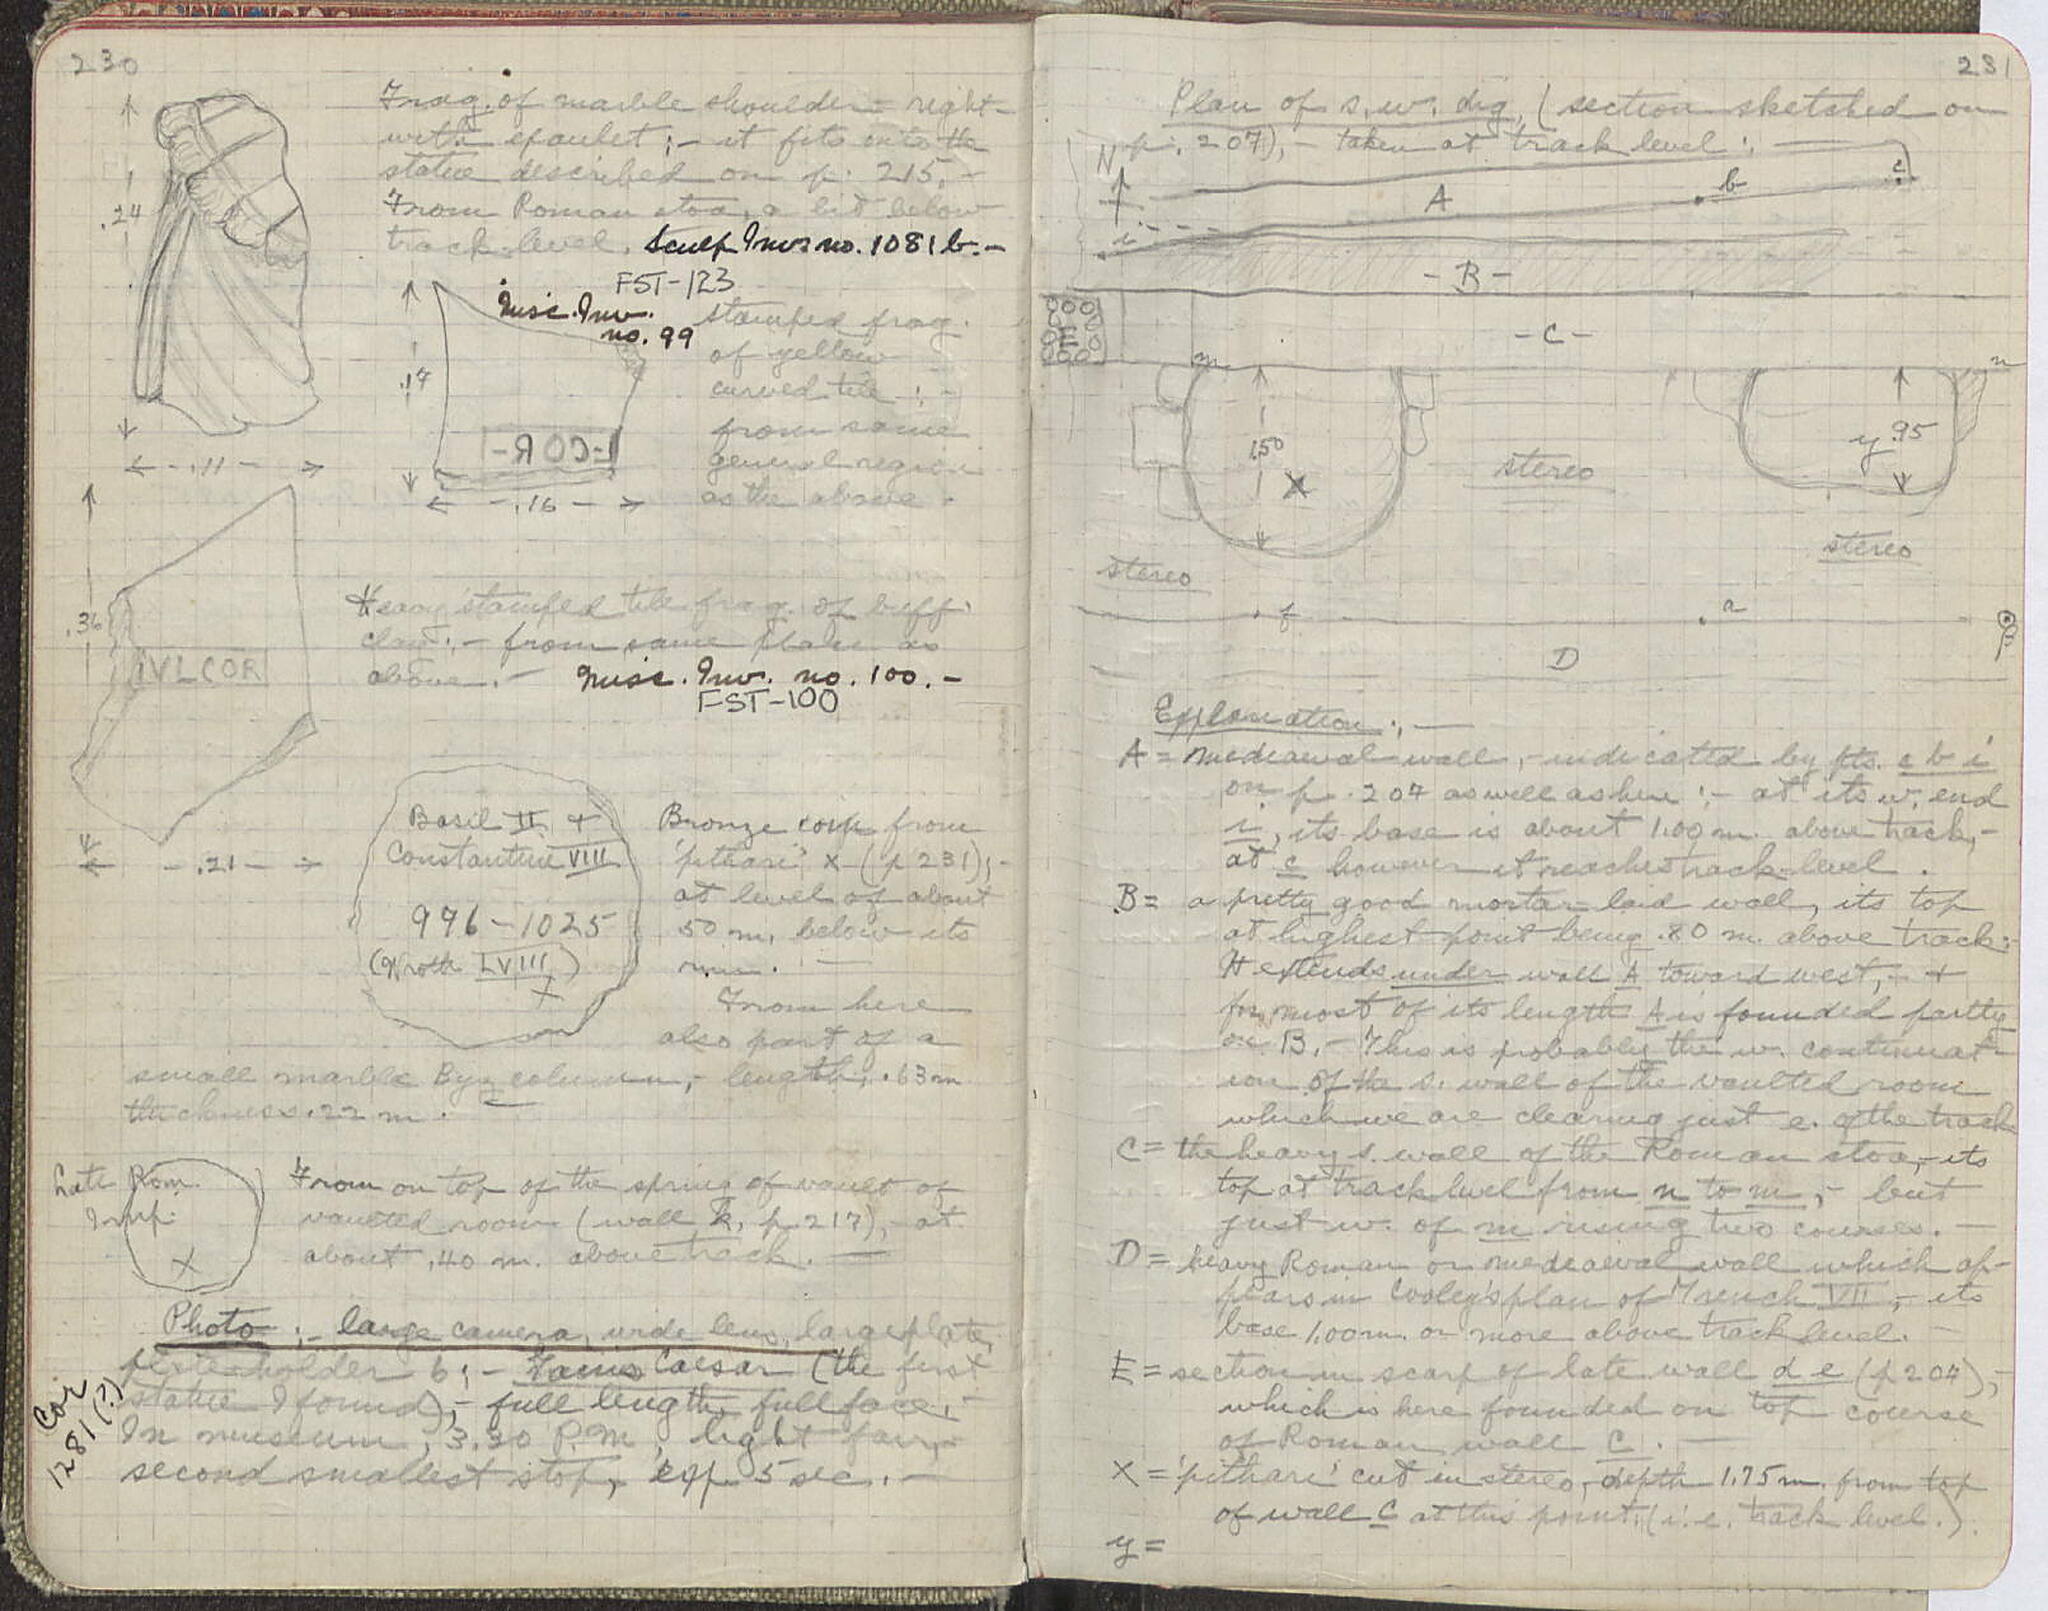 230
Frag. of marble shoulder - right -
with epaulet ; - it fits onto the
statue described on p. 215. -
From Roman stoa, a bit below
track level. Sculp Inv. no. 1081 b. -
FST-123
.24
.11
Misc. Inv.
no. 99
stamped frag.
of yellow
curved tile ; -
from same
general region
as the above.
.17
-COR-
.16
Heavy stamped tile frag. of buff
clay ; - from same place as
above. - Misc. Inv. no. 100. -
FST-100
.36
IVLCOR
.21
Basil II +
Constantine VIII
976 - 1025
(Wroth LVIII)
X
Bronze coin from
'pithari' x (p 231) ; -
at level of about
50 m. below its
rim. —
From here
also part of a
small marble Byz column, - length, .63 m
thickness .22 m.
Late Rom.
Imp.
X
From on top of the spring of vault of
vaulted room (wall k, p. 217), - at
about .40 m. above track. —
Photo ; - large camera, wide lens, large plate,
plateholder 6 ; - Gaius Caesar (the first
statue I found), - full length, full face, -
In museum, 3.20 P.M, light fair, -
second smallest stop, exp. 5 sec. -
Cor
1281 (?)
231
Plan of s.w. dig, (section sketched on
p. 207), - taken at track level ; —
N
A
b
c
i
- B -
E
- C -
m
n
1.50
X
stereo
y .95
stereo
stereo
f
a
β
D
Explanation ; —
A = mediaeval wall, - indicated by pts. c b i
on p. 207 as well as here ; - at its w. end
i, its base is about 1.00 m. above track, -
at c however it reaches track-level.
B = a pretty good mortar-laid wall, its top
at highest point being .80 m. above track :
It extends under wall A toward west, - +
for most of its length A is founded partly
on B. - This is probably the w. continuat-
ion of the s. wall of the vaulted room
which we are clearing just e. of the track
C = the heavy s. wall of the Roman stoa, - its
top at track level from n to m, - but
just w. of m rising two courses. —
D = heavy Roman or mediaeval wall which ap-
pears in Cooley's plan of Trench VII, - its
base 1.00 m. or more above track level. —
E = section in scarp of late wall d e (p 207), -
which is here founded on top course
of Roman wall C. —
X = 'pithari' cut in stereo, - depth 1.75 m. from top
of wall C at this point. (i.e. track level.)
y =